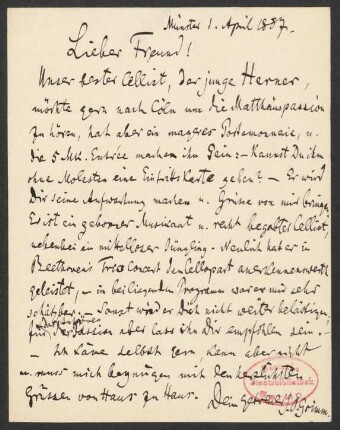 Münster 1. April 1887.
Lieber Freund!
Unser bester Cellist, der junge Herner,
möchte gern nach Cöln um die Matthäuspassion
zu hören, hat aber ein mageres Portemonnaie, u.
die 5 Mk. Entrée machen ihm Pein; – Kannst Du ihm
ohne Molesten eine Eintrittskarte geben? – Er wird
Dir seine Aufwartung machen u. Grüsse von mir bringen.
Er ist ein geborener Musikant u. recht begabter Cellist,
nebenbei ein mittelloser Jüngling. – Neulich hat er in
Beethoven's Trio Concert den Cellopart anerkennenswerth
geleistet, – in beiliegendem Programm war er mir sehr
schätzbar. – Sonst wird er Dich nicht weiter behelligen,
für die Passion aber lass ihn Dir empfohlen sein. –
– Ich käme selbst gern, kann aber nicht
u. muss mich begnügen mit den herzlichsten
Grüssen von Haus zu Haus.
Dein getreuer
JOGrimm.
Staatsbibliothek